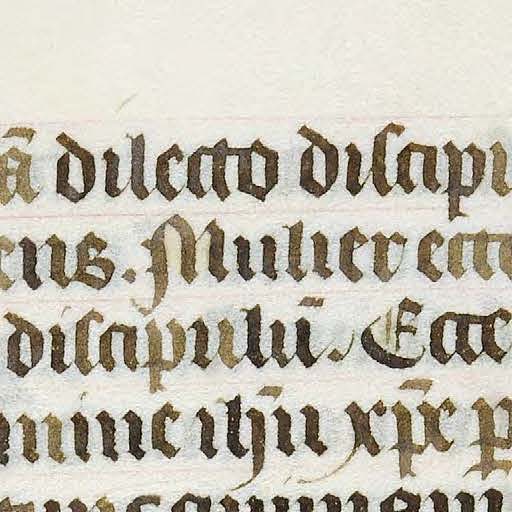 dilecto discipu
cus. Mulier ecce
discipulū. Ecce
mine ihū xpē